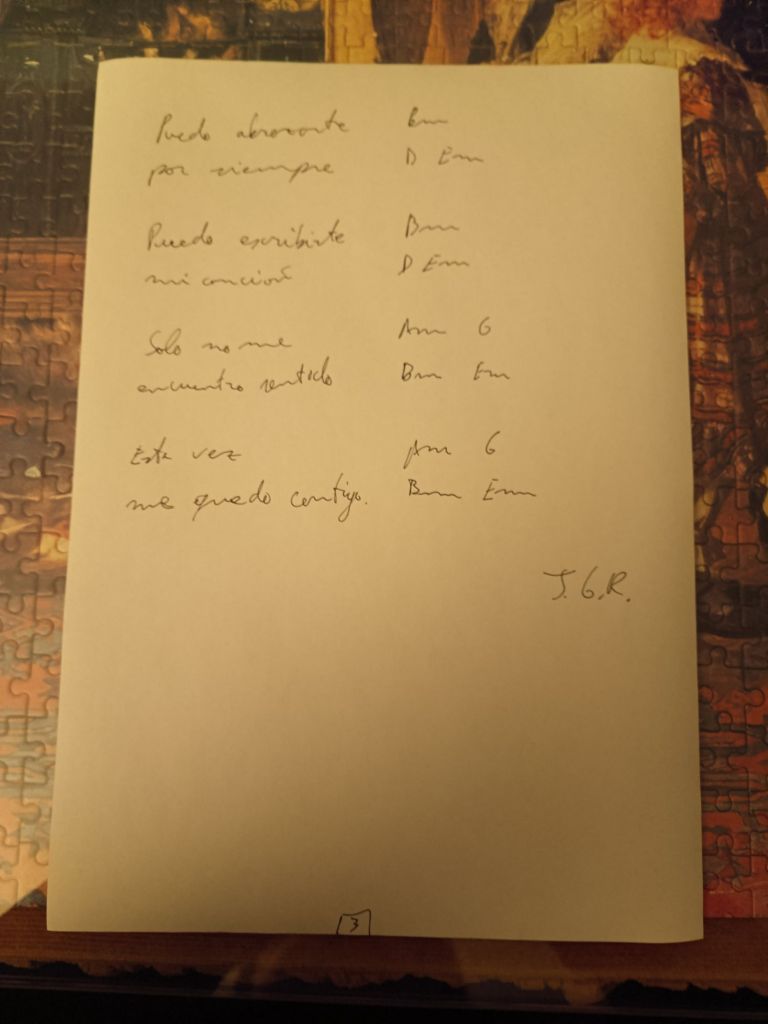 Puedo abrazarte Bm
por siempre D Em
Puedo escribirte Bm
mi canción D Em
Solo no me Am G
encuentro sentido Bm Em
Esta vez Am G
me quedo contigo. Bm Em
J.G.R.
3